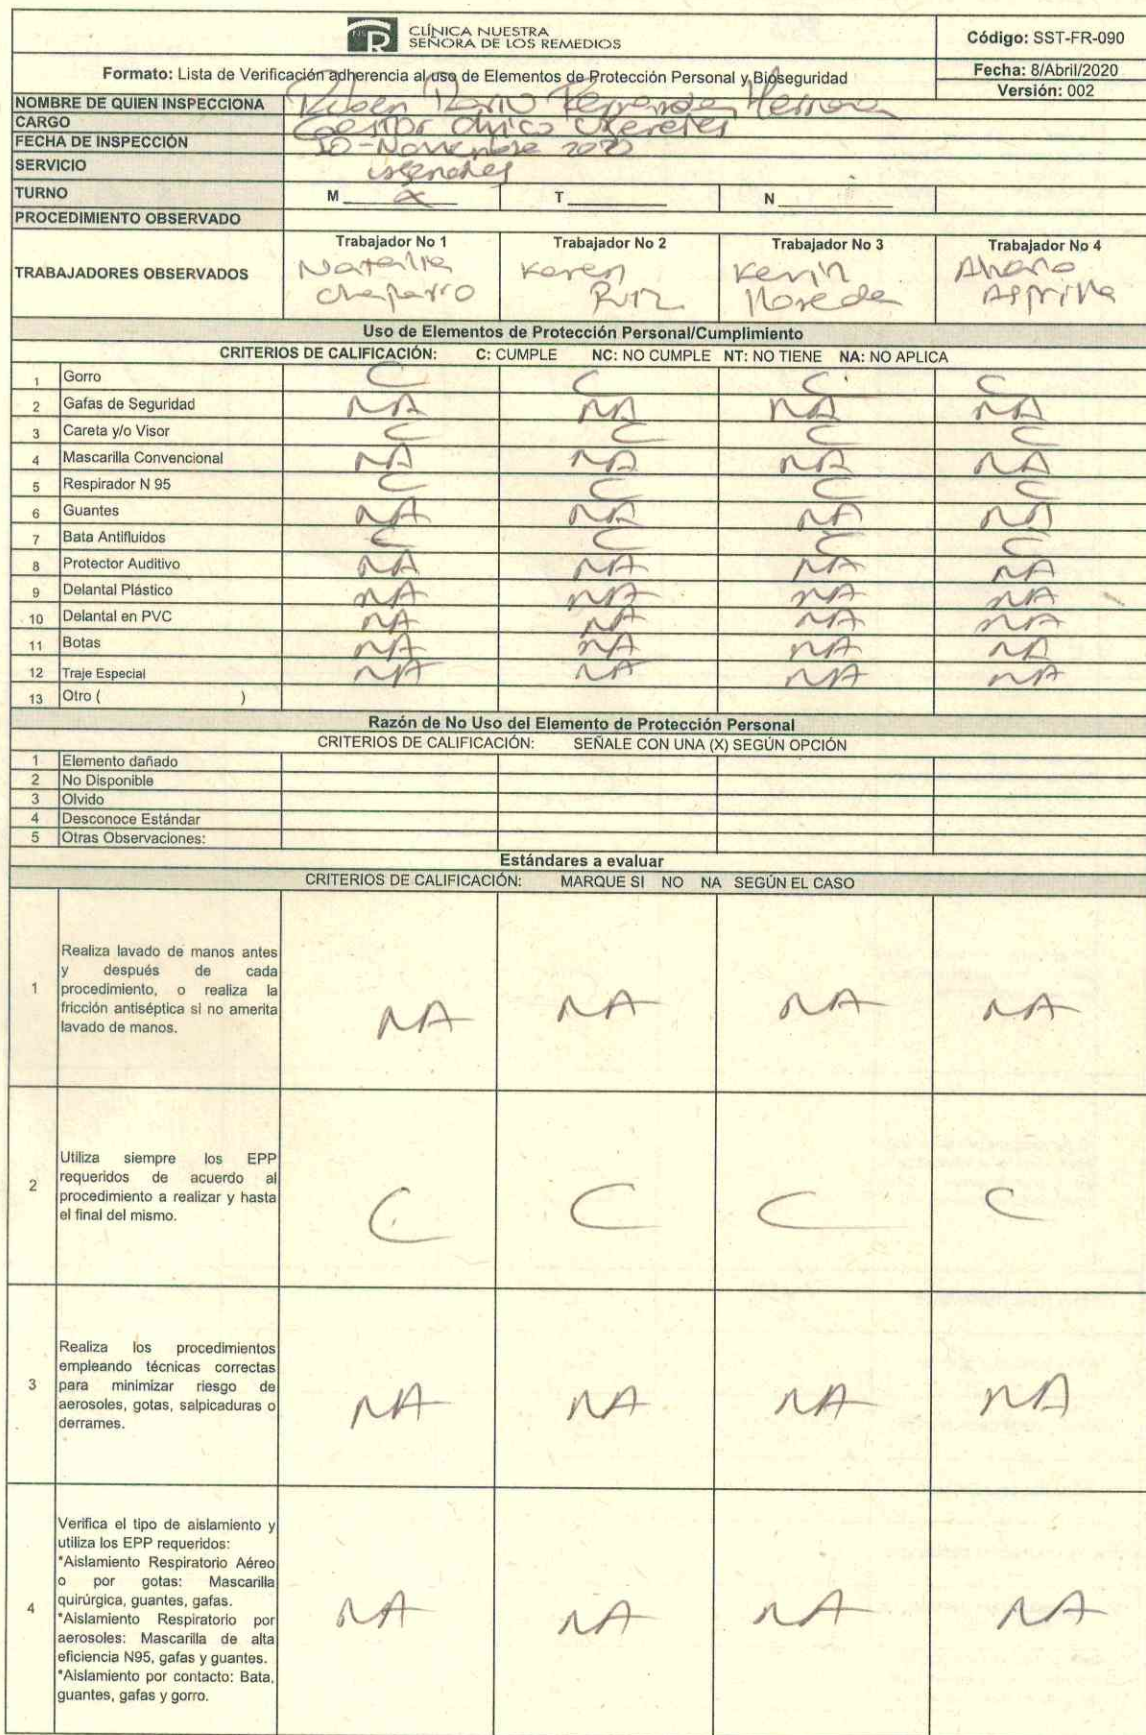 CLÍNICA NUESTRA
SEÑORA DE LOS REMEDIOS
Código: SST-FR-090
Formato: Lista de Verificación adherencia al uso de Elementos de Protección Personal y Bioseguridad
Fecha: 8/Abril/2020
Versión: 002
NOMBRE DE QUIEN INSPECCIONA Ruben Dario Herrera
CARGO Gestor
FECHA DE INSPECCIÓN 10-Noviembre 2020
SERVICIO
TURNO M X T N
PROCEDIMIENTO OBSERVADO
TRABAJADORES OBSERVADOS
Trabajador No 1 Trabajador No 2 Trabajador No 3 Trabajador No 4
Natalia Karen Kevin
Chaparro Ruiz Asprilla
Uso de Elementos de Protección Personal/Cumplimiento
CRITERIOS DE CALIFICACIÓN: C: CUMPLE NC: NO CUMPLE NT: NO TIENE NA: NO APLICA
1 Gorro C C C C
2 Gafas de Seguridad NA NA NA NA
3 Careta y/o Visor C C C C
4 Mascarilla Convencional NA NA NA NA
5 Respirador N 95 C C C C
6 Guantes NA NA NA NA
7 Bata Antifluidos C C C C
8 Protector Auditivo NA NA NA NA
9 Delantal Plástico NA NA NA NA
10 Delantal en PVC NA NA NA NA
11 Botas NA NA NA NA
12 Traje Especial NA NA NA NA
13 Otro ( )
Razón de No Uso del Elemento de Protección Personal
CRITERIOS DE CALIFICACIÓN: SEÑALE CON UNA (X) SEGÚN OPCIÓN
1 Elemento dañado
2 No Disponible
3 Olvido
4 Desconoce Estándar
5 Otras Observaciones:
Estándares a evaluar
CRITERIOS DE CALIFICACIÓN: MARQUE SI NO NA SEGÚN EL CASO
Realiza lavado de manos antes
y después de cada
1 procedimiento, o realiza la
fricción antiséptica si no amerita
lavado de manos.
NA NA NA NA
Utiliza siempre los EPP
2 requeridos de acuerdo al
procedimiento a realizar y hasta
el final del mismo.
C C C C
Realiza los procedimientos
empleando técnicas correctas
3 para minimizar riesgo de
aerosoles, gotas, salpicaduras o
derrames.
NA NA NA NA
Verifica el tipo de aislamiento y
utiliza los EPP requeridos:
*Aislamiento Respiratorio Aéreo
o por gotas: Mascarilla
quirúrgica, guantes, gafas.
4 *Aislamiento Respiratorio por
aerosoles: Mascarilla de alta
eficiencia N95, gafas y guantes.
*Aislamiento por contacto: Bata,
guantes, gafas y gorro.
NA NA NA NA